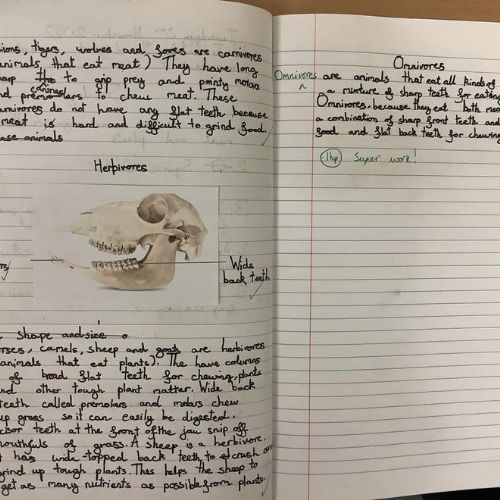 ions, tigers, wolves and foxes are carnivores
animals, that eat meat) They have long
to grip prey and pointy molars
canines
nd premolars to chew meat. These
arnivores do not have any flat teeth because
meat is hard and difficult to grind food.
ese animals
Herbivores
Wide
back teeth
Shape and size
orses, camels, sheep and goats are herbivores
animals that eat plants). The have columns
of broad flat teeth for chewing plants
and other tough plant matter. Wide back
teeth called premolars and molars chew
up grass so it can easily be digested.
teeth at the front of the jaw snip off
mouthfuls of grass. A sheep is a herbivore.
t has wide topped back teeth to crush an
grind up tough plants. Thes helps the sheep to
get as many nutrients as possible from plants.
Omnivores
Omnivores are animals that eat all kinds of
a mixture of sharp teeth for eating
Omnivores. because they eat both mea
a combination of sharp front teeth and
food and flat back teeth for chewing
1hp Super work!